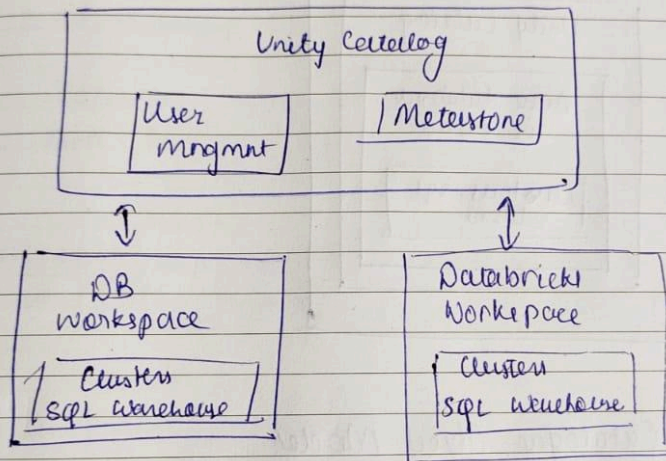 Unity Catalog
User
Mngmnt
Metastore
DB
Workspace
Clusters
SQL Warehouse
Databricks
Workspace
Clusters
SQL Warehouse